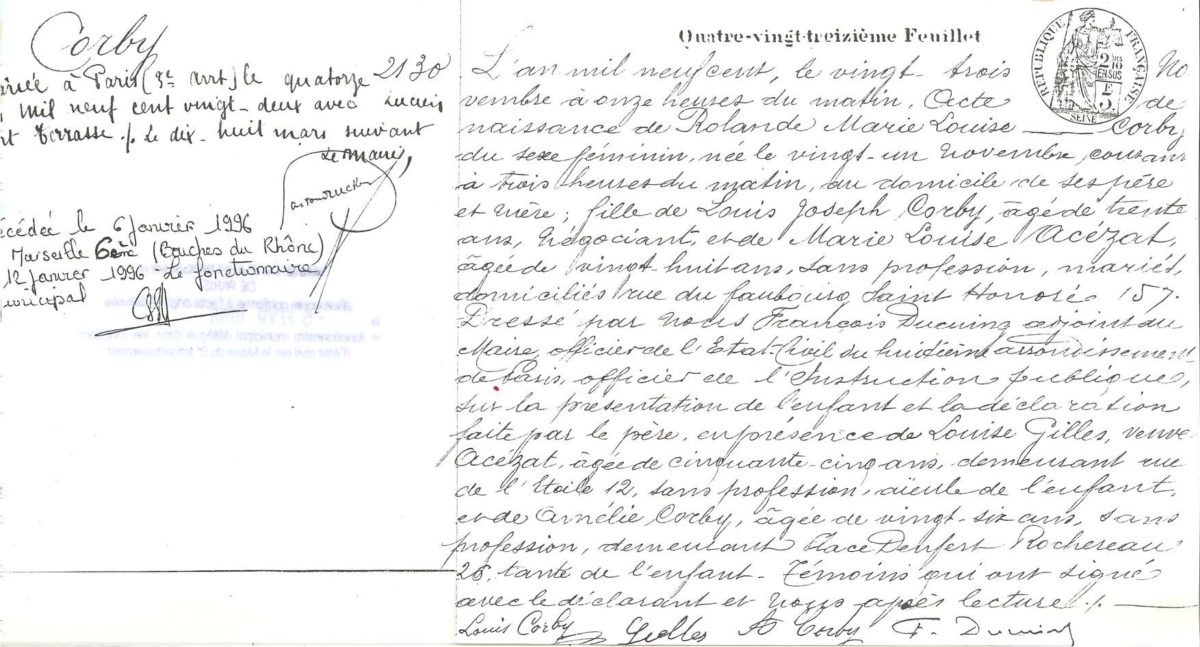 Corby
2130
à Paris (8e arrt) le quatorze
mil neuf cent vingt-deux avec Lucien
Terrasse ./. Le dix-huit mars suivant
Le Maire,
décédée le 6 janvier 1996
Marseille 6ème (Bouches du Rhône)
12 janvier 1996 - Le fonctionnaire
municipal
Quatre-vingt-treizième Feuillet
RÉPUBLIQUE FRANÇAISE
SEINE
L'an mil neuf cent, le vingt-trois No
vembre à onze heures du matin, Acte de
naissance de Rolande Marie Louise Corby
du sexe féminin, née le vingt-un novembre, courant
à trois heures du matin, au domicile de ses père
et mère; fille de Louis Joseph Corby, âgé de trente
ans, Négociant, et de Marie Louise Acézat,
âgée de vingt-huit ans, sans profession, mariés,
domiciliés rue du faubourg Saint Honoré 157.
Dressé par Nous François Ducuing adjoint au
Maire, officier de l'Etat-Civil du huitième arrondissement
de Paris, officier de l'Instruction publique,
sur la présentation de l'enfant et la déclaration
faite par le père, en présence de Louise Gilles, veuve
Acézat, âgée de cinquante-cinq ans, demeurant rue
de l'Etoile 12, sans profession, aïeule de l'enfant,
et de Amélie Corby, âgée de vingt-six ans, sans
profession, demeurant Place Denfert Rochereau
28, tante de l'enfant - Témoins qui ont signé
avec le déclarant et Nous après lecture ./.
Louis Corby Gilles A Corby F. Ducuing